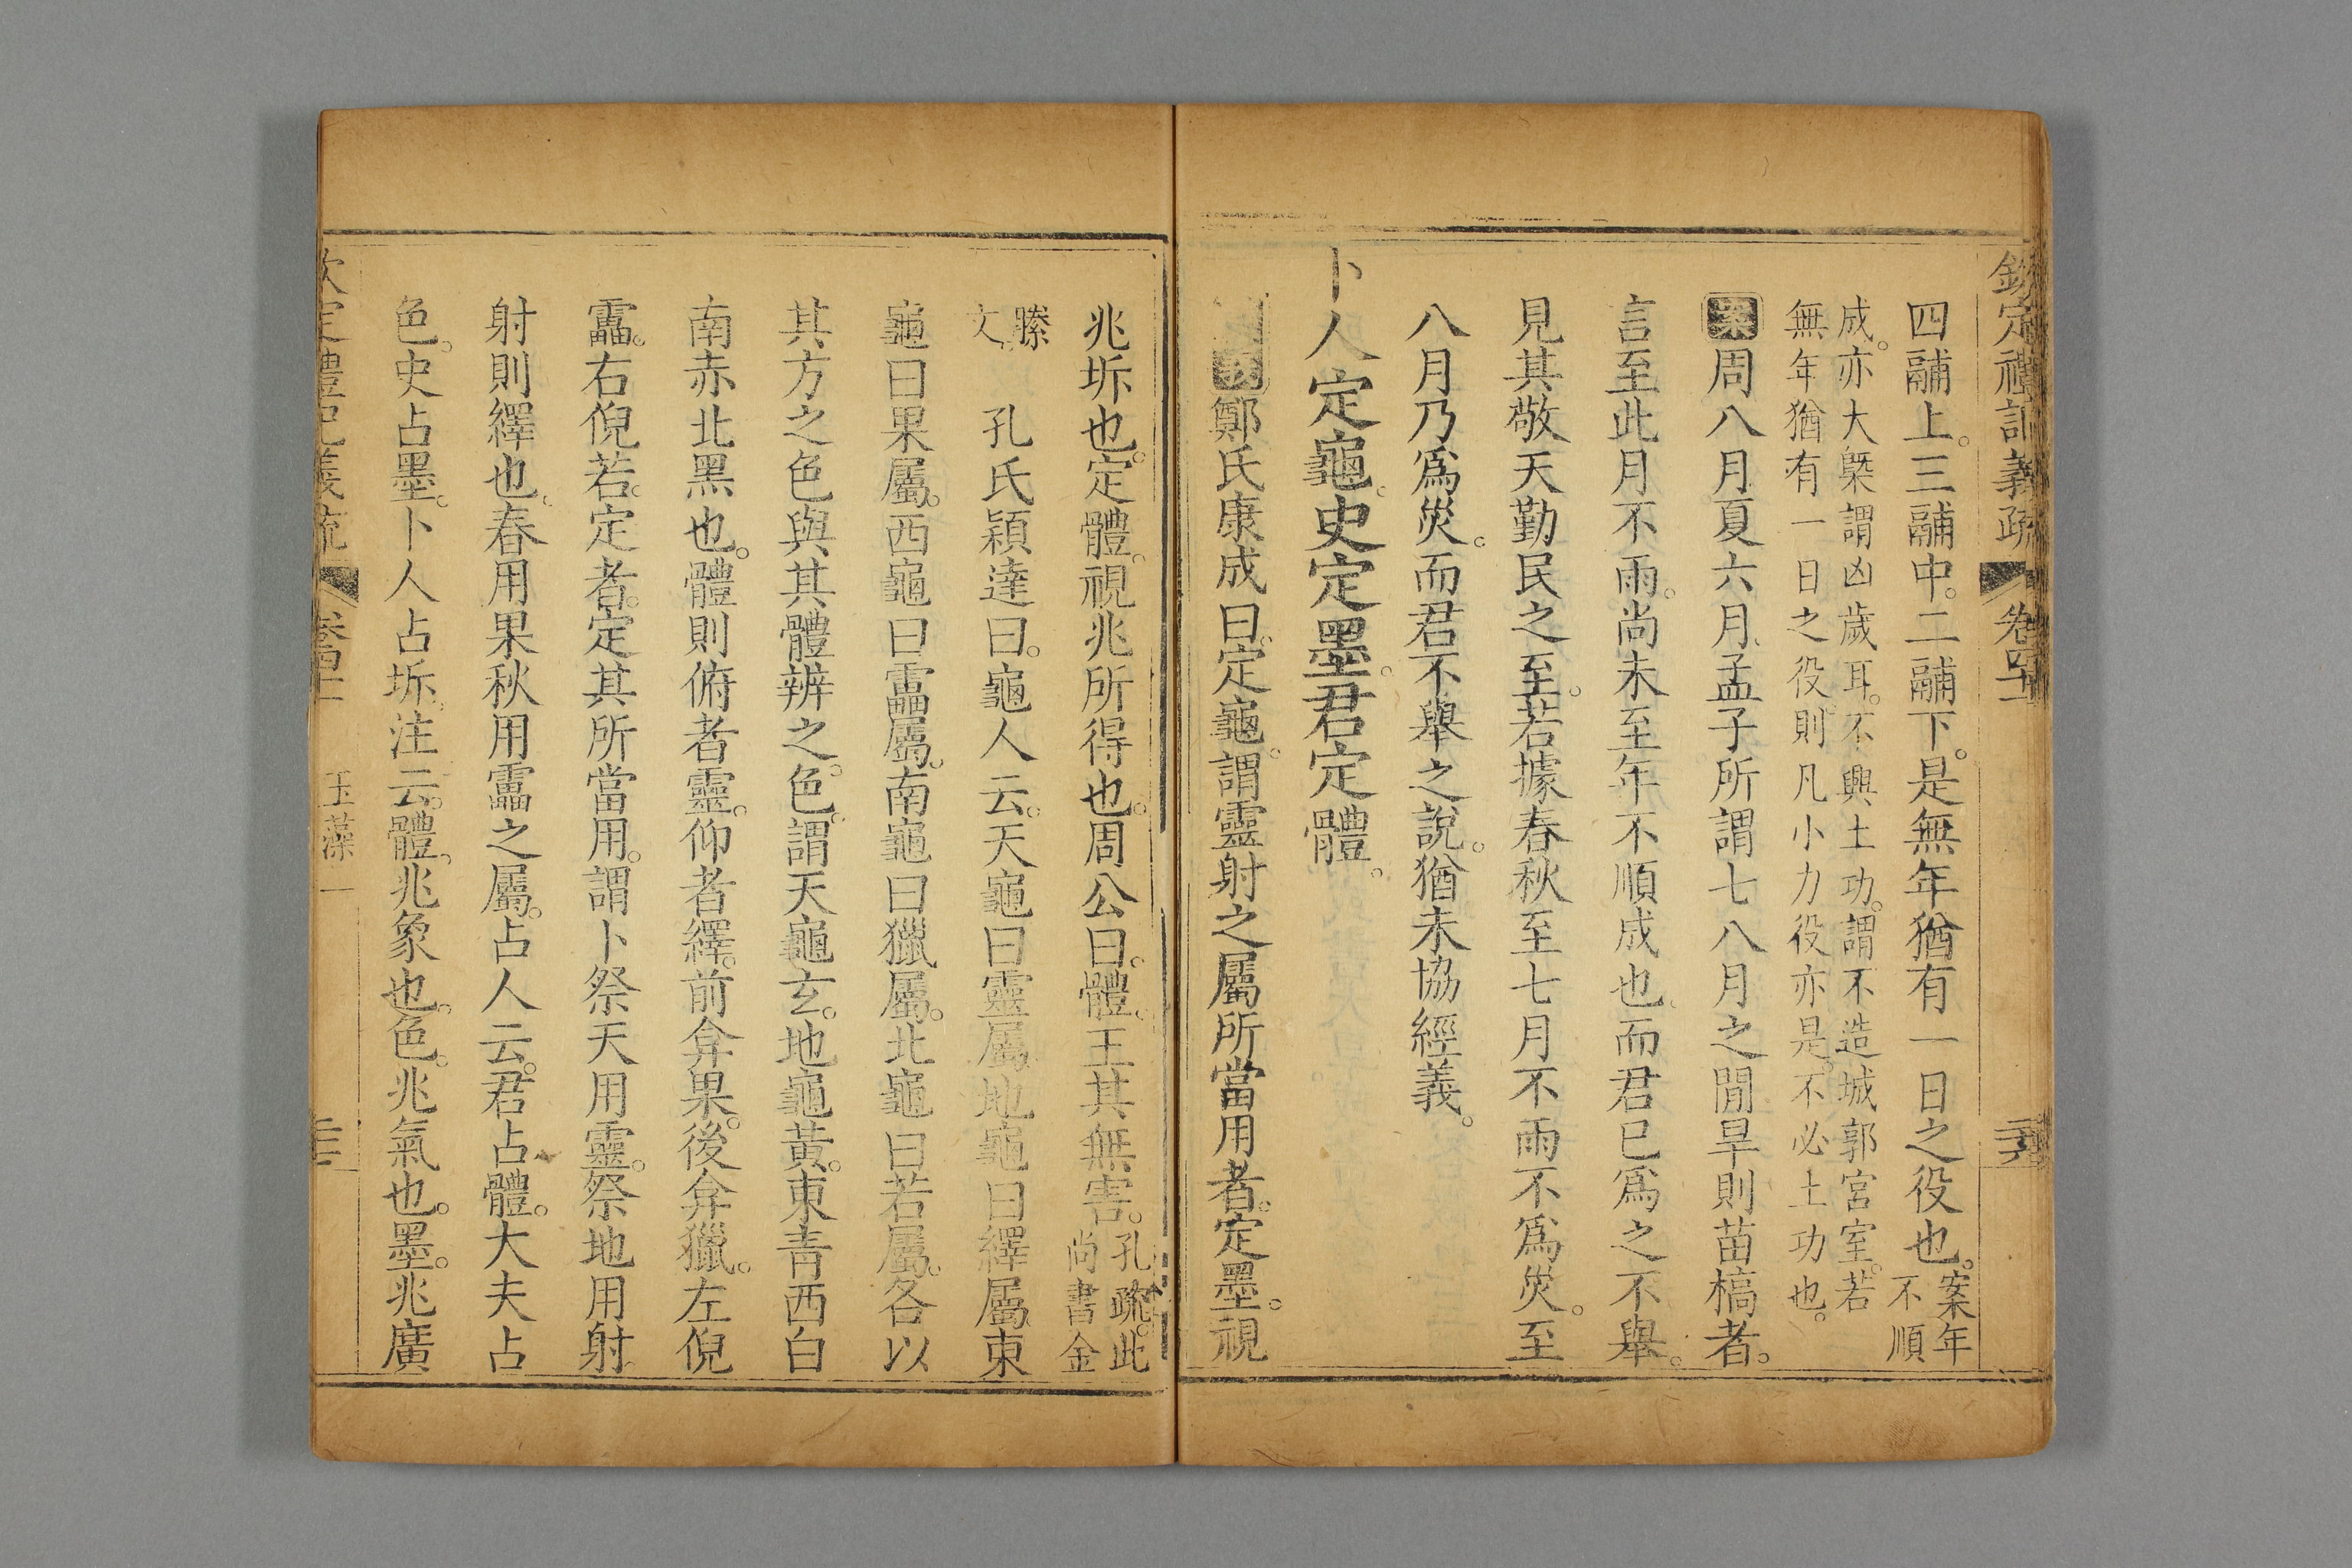 欽定禮記義疏 卷四十一
四鬴上。三鬴中。二鬴下。是無年猶有一日之役也。案年不順
成。亦大槩謂凶歲耳。不興土功。謂不造城郭宮室。若
無年猶有一日之役。則凡小力役亦是。不必土功也。
案周八月夏六月。孟子所謂七八月之閒旱則苗槁者。
言至此月不雨。尚未至年不順成也。而君已爲之不舉。
見其敬天勤民之至。若據春秋至七月不雨不爲災。至
八月乃爲災。而君不舉之說。猶未協經義。
卜人定龜。史定墨。君定體。
鄭氏康成曰。定龜。謂靈射之屬所當用者。定墨。視
兆坼也。定體。視兆所得也。周公曰。體。王其無害。孔疏。此尚書金
縢文。 孔氏穎達曰。龜人云。天龜曰靈屬。地龜曰繹屬。東
龜曰果屬。西龜曰靁屬。南龜曰獵屬。北龜曰若屬。各以
其方之色與其體辨之。色。謂天龜玄。地龜黃。東青西白
南赤北黑也。體則俯者靈。仰者繹。前弇果。後弇獵。左倪
靁。右倪若。定者。定其所當用。謂卜祭天用靈。祭地用射。
射則繹也。春用果秋用靁之屬。占人云。君占體。大夫占
色。史占墨。卜人占坼。注云。體。兆象也。色。兆氣也。墨。兆廣
欽定禮記義疏 卷四十一 玉藻一